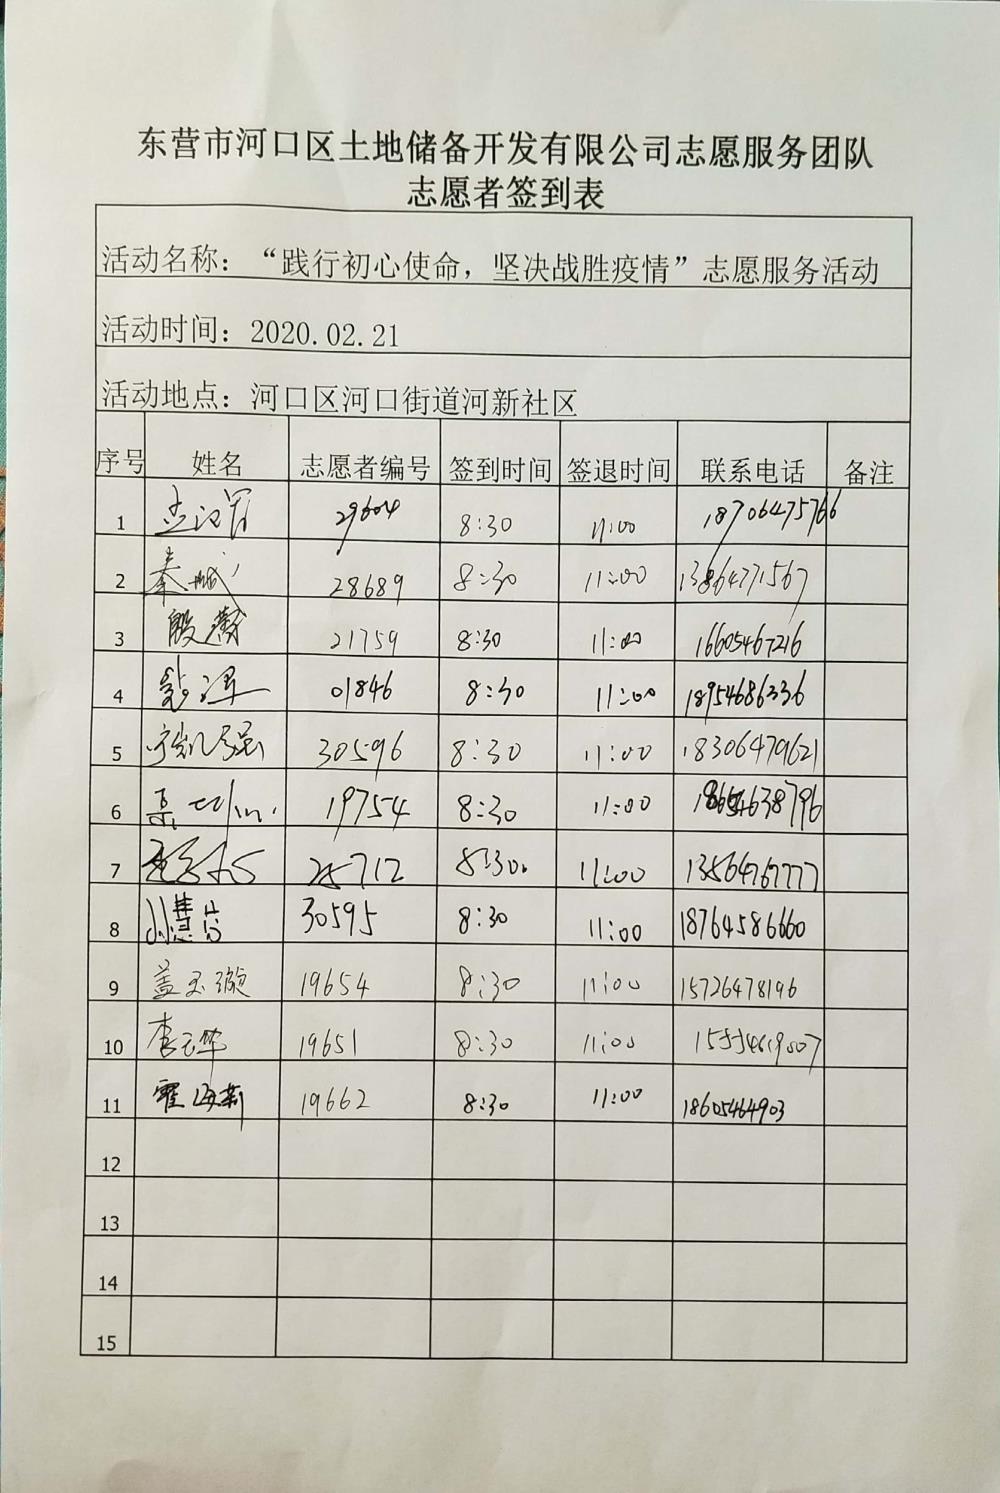 东营市河口区土地储备开发有限公司志愿服务团队
志愿者签到表
活动名称：“践行初心使命，坚决战胜疫情”志愿服务活动
活动时间：2020.02.21
活动地点：河口区河口街道河新社区
序号 姓名 志愿者编号 签到时间 签退时间 联系电话 备注
1 29604 8:30 11:00 18706475766
2 28689 8:30 11:00 13864771567
3 21759 8:30 11:00 16605467216
4 01846 8:30 11:00 18954686336
5 30596 8:30 11:00 18306479621
6 19754 8:30 11:00 18654638796
7 25712 8:30 11:00 13564767777
8 30595 8:30 11:00 18764586660
9 盖玉璇 19654 8:30 11:00 15726478196
10 李云华 19651 8:30 11:00
11 霍海燕 19662 8:30 11:00 18605464903
12
13
14
15